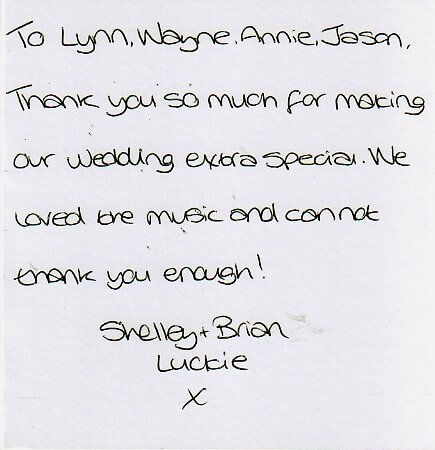 To Lynn, Wayne, Annie, Jason,
Thank you so much for making
our wedding extra special. We
loved the music and cannot
thank you enough!
Shelley + Brian
Luckie
X